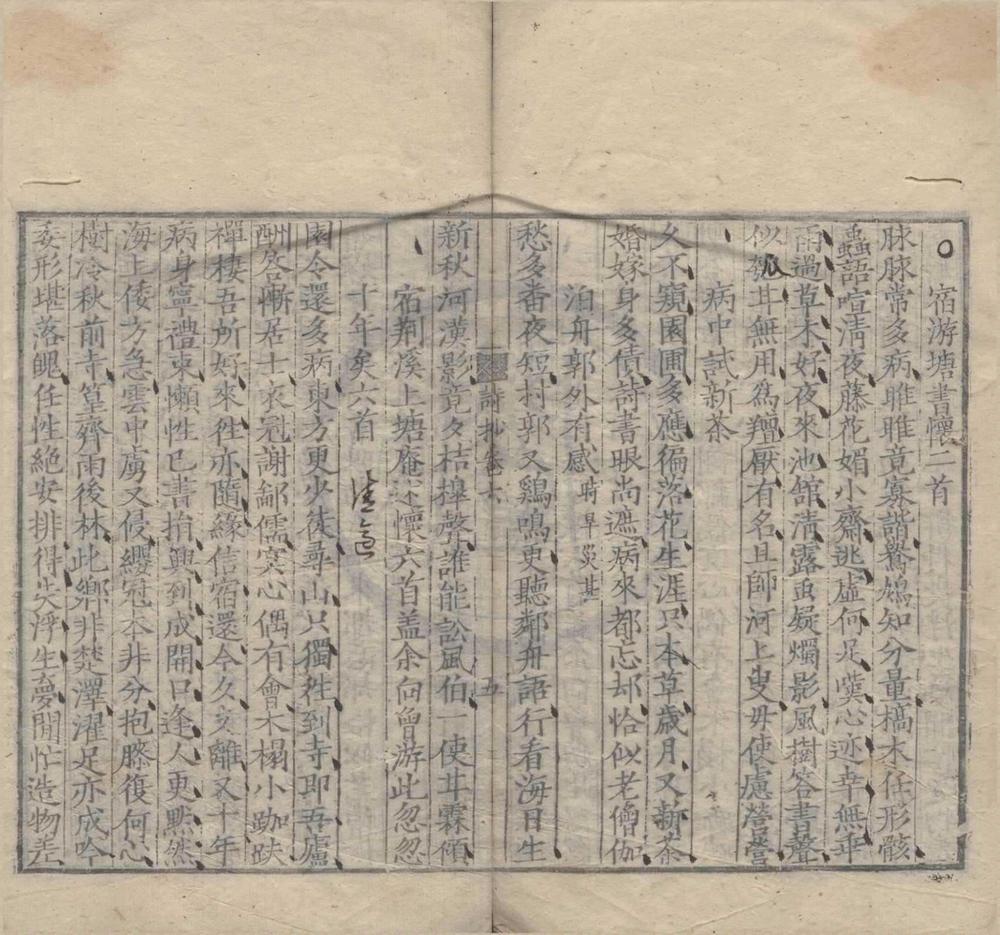 宿游塘書懷二首
脉脉常多病睢睢竟寡諧驚鴆知分量槁木任形骸
蟲語喧清夜藤花媚小齋逃虛何足嘆心迹幸無乖
雨過草木好夜來池館清露蟲疑燭影風樹答書聲
似瓠甘無用爲羶厭有名且師河上叟毋使慮營營
病中試新茶
久不窺園圃多應徧落花生涯只本草歲月又新茶
婚嫁身多債詩書眼尚遮病來都忘却恰似老僧伽
泊舟郭外有感時旱災甚
愁多番夜短村郭又鷄鳴更聽鄰舟語行看海日生
詩抄卷六 五
新秋河漢影竟夕桔槹聲誰能訟風伯一使甘霖傾
宿荆溪上塘庵述懷六首盖余向曾游此忽忽
十年矣六首
園令還多病東方更少徒尋山只獨徃到寺即吾廬
酬答慚居士衣冠謝鄙儒寞心偶有會木榻小跏趺
禪棲吾所好來徃亦隨緣信宿還今夕支離又十年
病身寧禮束懶性已書捐興到成開口逢人更黙然
海上倭方急雲中虜又侵纓冠本非分抱膝復何心
樹冷秋前寺篁齊雨後林此鄉非楚澤濯足亦成吟
委形堪落魄任性絶安排得失浮生夢閒忙造物差